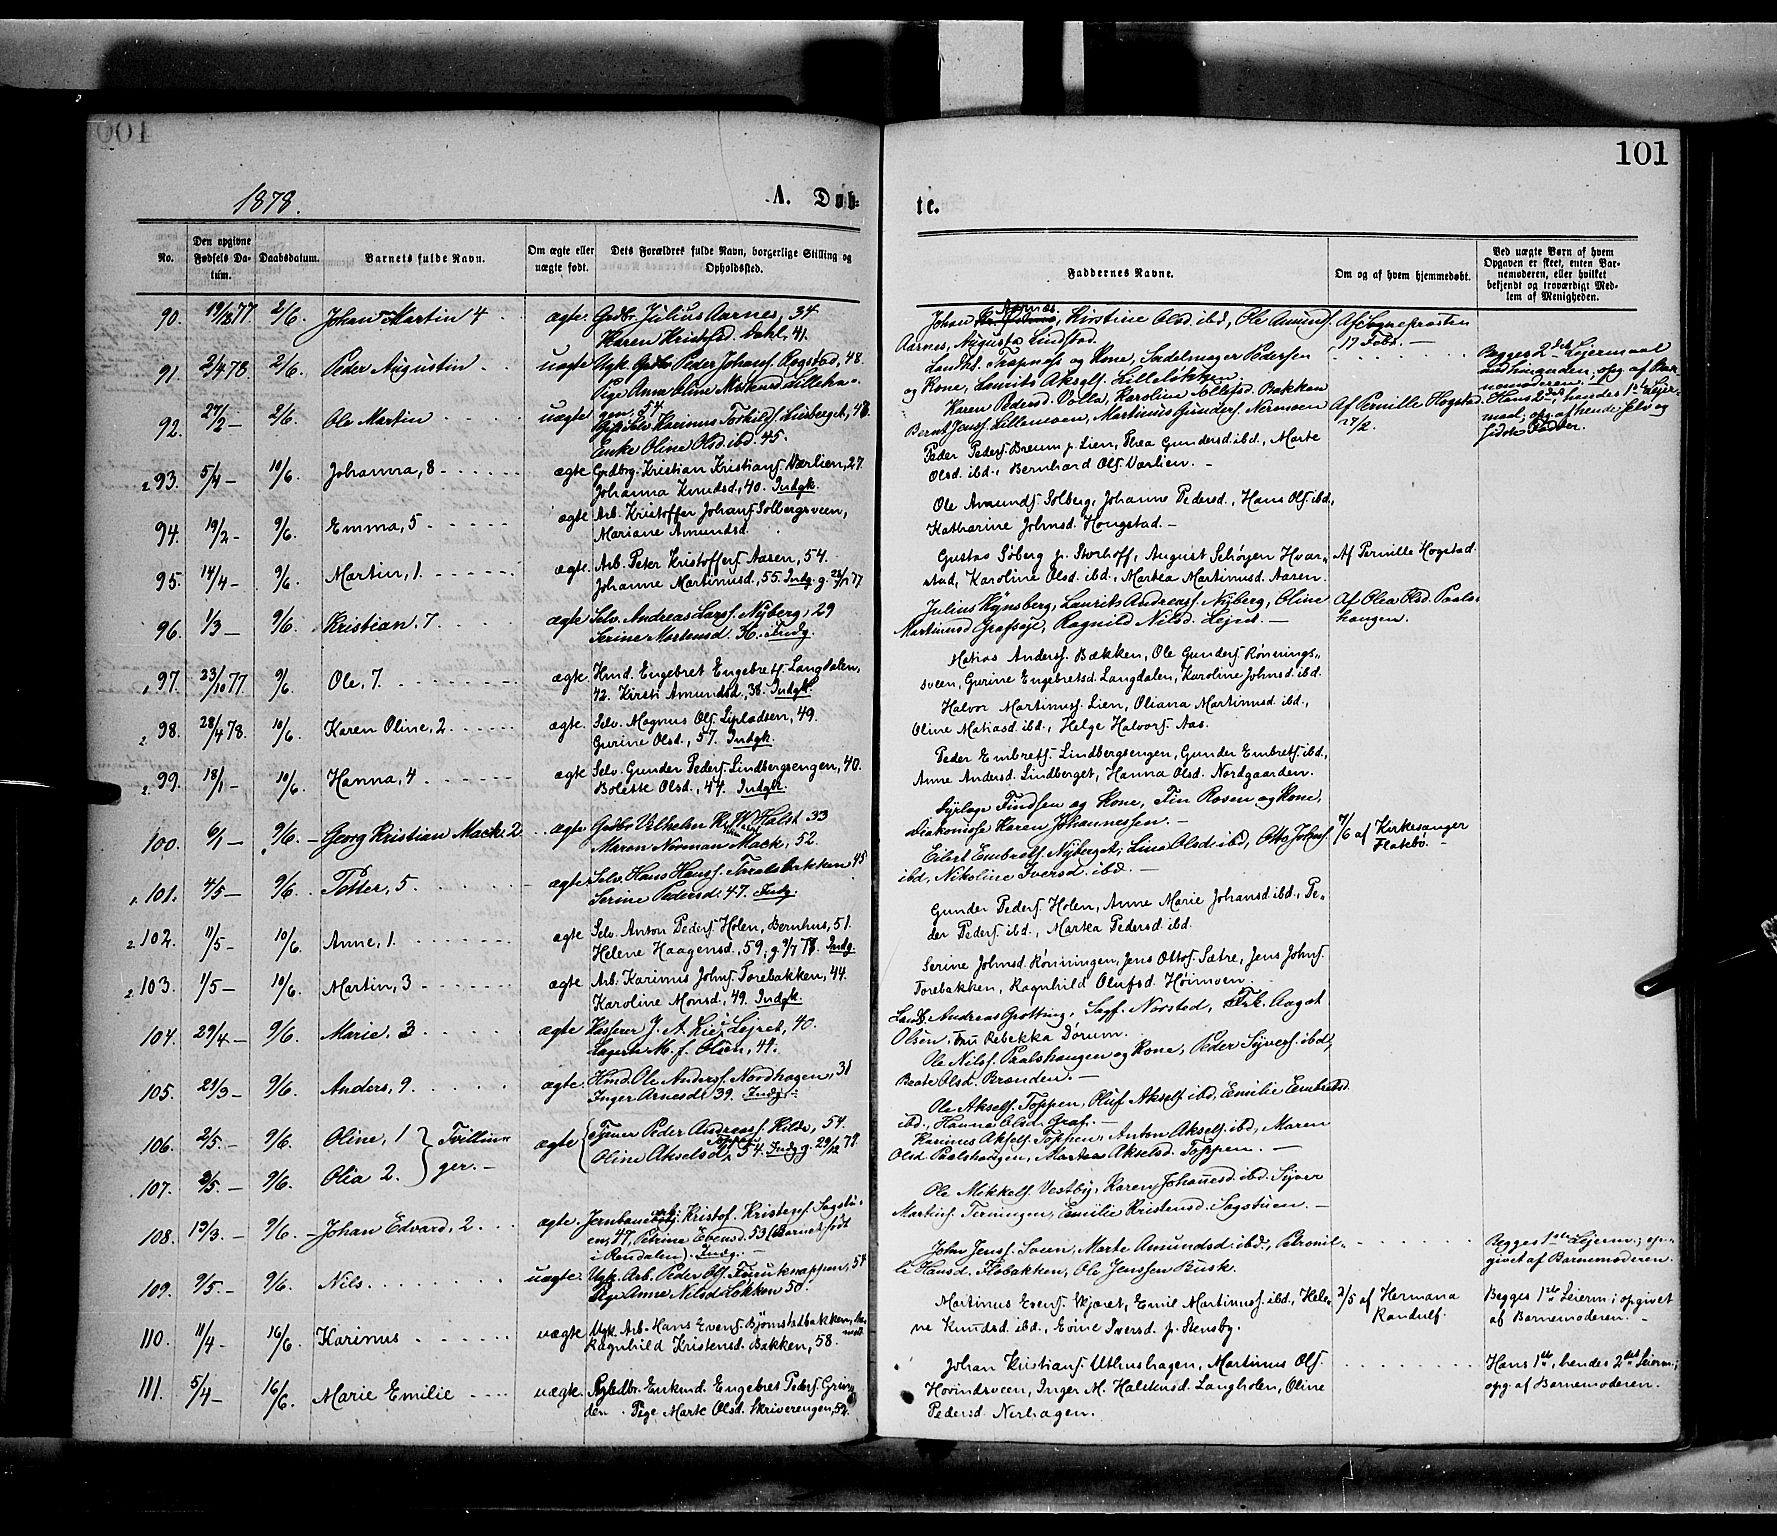 101
1878.
A. Døb-
te.
No.
Den opgivne Fødsels Datum.
Daabsdatum.
Barnets fulde Navn.
Om ægte eller uægte født.
Dets Forældres fulde Navn, borgerlige Stilling og Opholdssted.
Faddernes Navne.
Om og af hvem hjemmedøbt.
Ved uægte Børn af hvem Opgaven er skeet, enten Barnemoderen, eller hvilket bekjendt og troværdigt Medlem af Menigheden.
90. 19/8 77 2/6 Johan Martin 4 ægte Grdbr. Julius Aarnes, 34
Karen Kristofd. Dahl, 41.
Johan Aarnes, Kirstine Olsd ibd, Ole Amunds.
Aarnes, Augusta Lindstad.
Af Sogneprosten
17 Febr. —
91. 2/4 78. 2/6 Peder Augustin uægte Ugk. Peder Johans. Rogstad, 48.
Landhl. Trapness og Kone, Sadelmager Pedersen
og Kone, Laurits Aksels. Lilleløkken.
92. 27/2 — 2/6 Ole Martin uægte
Enke Oline Olsd. ibd. 45.
Karen Pedersd. Volla, Karoline Tollefsd. Bakken
Bernt Jens. Lillemoen, Martinus Gunders. Nermoen
Af Pernille Hogstad
27/2.
93. 5/4 — 10/6 Johanna, 8 ægte Grdbrg. Kristian Kristians. Værlien, 27.
Johanna Knudsd., 40. Indgk.
Peder Peders. Breum p. Lien, Thea Gundersd. ibd., Marte
Olsd. ibd., Bernhard Ols. Værlien. —
94. 19/2 — 9/6. Emma, 5 ægte Arb. Kristoffer Johans. Solbergsveen,
Mariane Amundsd.
Ole Amunds. Solberg, Johanne Pedersd., Hans Ols. ibd.,
Katharine Johnsd. Hougstad. —
95. 14/4 — 9/6. Martin, 1. ægte. Arb. Peter Kristoffers. Aasen, 54.
Johanne Martinusd., 55. Indg. g. 28/1 77
Gustav Søberg p. Storhoff, August Schøyen Hvar-
stad, Karoline Olsd. ibd., Martea Martinusd. Aasen.
Af Pernille Hogstad.
96. 1/3 — 9/6. Kristian. 7. ægte Selv. Andreas Lars. Nyberg, 29
Serine Mortensd. 36. Indg.
Julius Rynsberg, Laurits Andreass. Nyberg, Oline
Martinusd Grafseje, Ragnild Nilsd. Lejret. —
Af Olea Olsd. Paals-
haugen.
97. 23/10 77 9/6. Ole, 7. ægte Hmd. Engebret Engebrets. Langdalen,
42. Kirsti Amundsd., 38. Indgk.
Matias Anders. Bækken, Ole Gunders. Rønnings-
sveen, Gurine Engebretsd. Langdalen, Karoline Johnsd. ibd.
98. 28/4 78. 10/6. Karen Oline, 2 ægte. Selv. Magnus Ols. Lipladsen, 49.
Gurine Olsd., 57. Indgk.
Halvor Martinus. Lien, Oliana Martinusd. ibd.,
Oline Matiasd. ibd., Helge Halvors. Aas.
99. 18/1 — 10/6. Hanna, 4 ægte Selv. Gunder Peders. Lindbergsengen, 40.
Bolette Olsd., 44. Indgk.
Peder Embrets. Lindbergsengen, Gunder Embrets. ibd.,
Anne Andersd. Lindberget, Hanna Olsd. Nordgaarden.
100. 6/1 — 9/6. — Georg Kristian Mack. 2 ægte Grdbr Vilhelm Holst 33
Maren Norman Mack, 52.
og Kone, Fin Roven og Kone,
Diakonisse Karen Johannessen. —
101. 4/5 — 9/6. Petter, 5. ægte Selv. Hans Hans. Traalsbakken 45
Serine Pedersd. 47. Indg.
Eilert Embrets. Nyberget, Lina Olsd ibd, Otto Johns.
ibd, Nikoline Iversd. ibd. —
7/6 af Kirkesanger
Flakbo. —
102. 11/5 — 10/6. Anne, 1. ægte Selv. Anton Peders. Holen, Bernhus, 51.
Helene Haagensd., 59, g 9/7 77. Indg.
Gunder Peders. Holen, Anne Marie Johansd. ibd., Pe-
der Peders. ibd., Martea Pedersd. ibd.
103. 1/5 — 10/6. Martin, 3 ægte. Arb. Karinus Johns. Torebakken, 44.
Karoline Monsd., 49. Indgk.
Serine Johnsd. Rønningen, Jens Ottos. Sætre, Jens Johns.
Torebakken, Ragnhild Olufsd. Høimoen.
104. 29/4 — 9/6. Marie. 3 ægte Kasserer J. A. Lie, Lejret, 40.
Andreas Grøtting, Sagf. Norstad, Frk. Aagot
Olsen, Fru Rebekka Dørum.
105. 29/3 — 9/6. Anders, 9. ægte. Hmd. Ole Anders. Nordhagen, 31
Inger Arnesd. 39. Indg.
Ole Nils. Paalshaugen og Kone, Peder Syvers. ibd,
Beate Olsd. Brænden. —
106. 2/5. — 9/6. Oline, 1 } Tvillin-
ger. — ægte Tjener Peder Andreas. Hilde, 54.
Oline Akselsd. Toppen, 54. Indg g. 29/12 77
Ole Aksels. Toppen, Oluf Aksels ibd, Emilie Embretsd.
ibd., Hanna Olsd. Graf. —
107. 2/5. — 9/6. Olia 2.
Karinus Aksels. Toppen, Anton Aksels. ibd, Maren
Olsd. Paalshaugen, Martea Akselsd. Toppen. —
108. 19/3. — 9/6. — Johan Edvard, 2 ægte. Jernbanearb. Kristof. Kristens. Sagstu-
en, 47, Petrine Ebensd. 53 (Barnet født
i Rendalen). Indg. —
Ole Mikkels. Vestby, Karen Johannesd. ibd. Syver
Martins. Terningen, Emilie Kristensd. Sagstuen. —
109. 9/5. — 9/6. Nils. uægte. Ugk. Arb. Peder Ols. Furuknappen, 54
Pige Anne Nilsd Løkken 50.
John Jens. Sveen, Marte Amundsd. ibd., Pernil-
le Hansd. Flobakken, Ole Jenssen Busk.
Begges 1ste Lejerm.; op-
givet af Barnemoderen.
110. 11/4 — 16/6. Karinus uægte Ugk. Arb. Hans Evens. Bjørnstadbakken,
Ragnhild Kristensd. Bakken, 58.
Martinus Evens. Skjæret, Emil Martinus. ibd., Hele-
ne Knudsd. ibd., Eoine Iversd. p. Stensby.
2/5 af Hermana
Randulf.
Begges 1ste Leierm; opgivet
af Barnemoderen. —
111. 5/4 — 16/6. Marie Emilie uægte Enkmd. Engebret Peders. Grin-
den. Pige Marte Olsd. Skriverengen, 52.
Johan Kristians. Uthushagen, Martinus Ols.
Hovindsveen, Inger M. Halstensd. Langholen, Oline
Pedersd. Nerhagen.
Hans 1ste, hendes 2det Leierm.;
opg. af Barnemoderen.